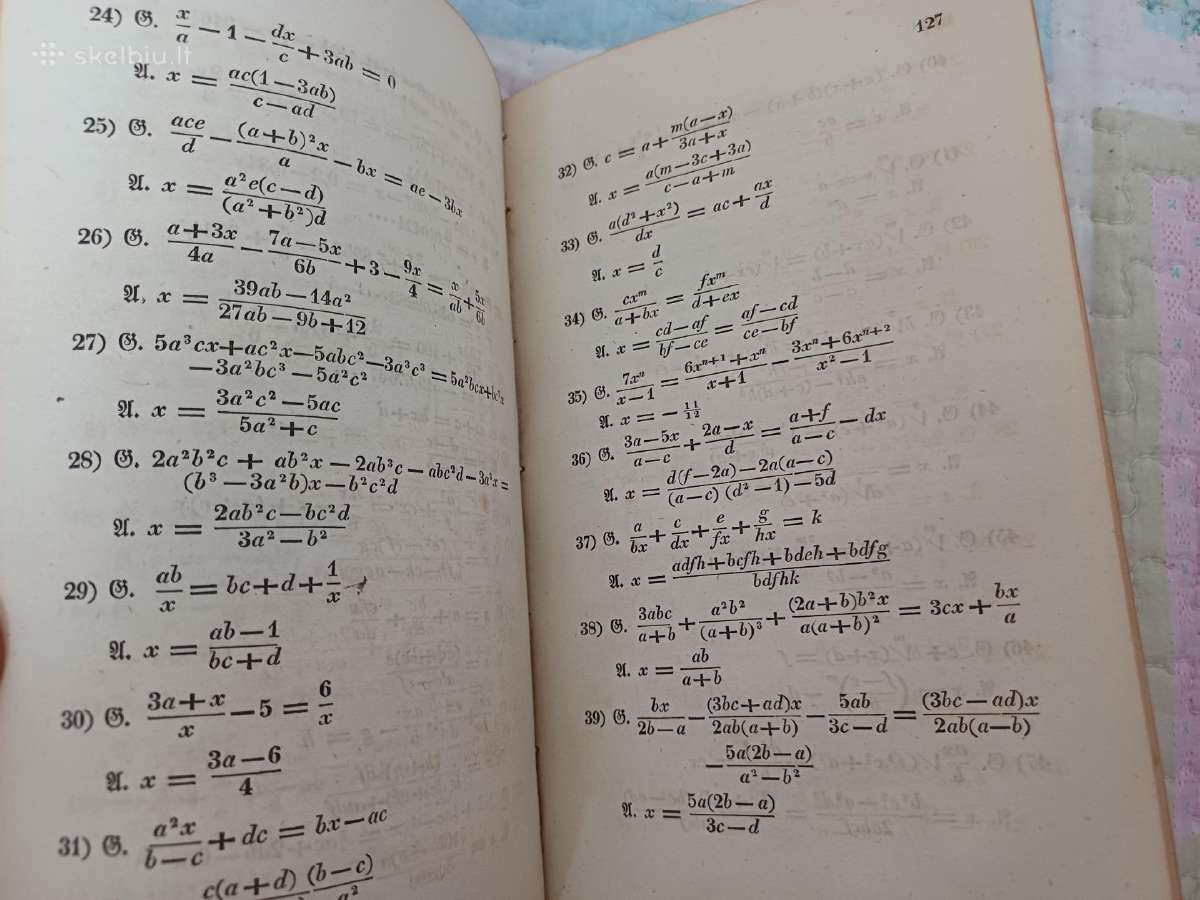 skelbiu.lt
24) G. x/a − 1 − dx/c + 3ab = 0
A. x = ac(1 − 3ab)/(c − ad)
25) G. ace/d − (a+b)²x/a − bx = ae − 3bx
A. x = a²e(c − d)/((a² + b²)d)
26) G. (a + 3x)/4a − (7a − 5x)/6b + 3 − 9x/4 = x/ab + 5x/6b
A. x = (39ab − 14a²)/(27ab − 9b + 12)
27) G. 5a³cx + ac²x − 5abc² − 3a³c³ = 5a²bcx + bc²x
− 3a²bc³ − 5a²c²
A. x = (3a²c² − 5ac)/(5a² + c)
28) G. 2a²b²c + ab²x − 2ab³c − abc²d − 3a³x =
(b³ − 3a²b)x − b²c²d
A. x = (2ab²c − bc²d)/(3a² − b²)
29) G. ab/x = bc + d + 1/x
A. x = (ab − 1)/(bc + d)
30) G. (3a + x)/x − 5 = 6/x
A. x = (3a − 6)/4
31) G. a²x/(b − c) + dc = bx − ac
c(a + d) (b − c)
a²
127
32) G. c = a + m(a − x)/(3a + x)
A. x = a(m − 3c + 3a)/(c − a + m)
33) G. a(d² + x²)/dx = ac + ax/d
A. x = d/c
34) G. cxᵐ/(a + bx) = fxᵐ/(d + ex)
A. x = (cd − af)/(bf − ce) = (af − cd)/(ce − bf)
35) G. 7xⁿ/(x − 1) = (6xⁿ⁺¹ + xⁿ)/(x + 1) − (3xⁿ + 6xⁿ⁺²)/(x² − 1)
A. x = − 11/12
36) G. (3a − 5x)/(a − c) + (2a − x)/d = (a + f)/(a − c) − dx
A. x = (d(f − 2a) − 2a(a − c))/((a − c) (d² − 1) − 5d)
37) G. a/bx + c/dx + e/fx + g/hx = k
A. x = (adfh + bcfh + bdeh + bdfg)/bdfhk
38) G. 3abc/(a + b) + a²b²/(a + b)³ + (2a + b)b²x/(a(a + b)²) = 3cx + bx/a
A. x = ab/(a + b)
39) G. bx/(2b − a) − (3bc + ad)x/(2ab(a + b)) − 5ab/(3c − d) = (3bc − ad)x/(2ab(a − b))
− 5a(2b − a)/(a² − b²)
A. x = 5a(2b − a)/(3c − d)